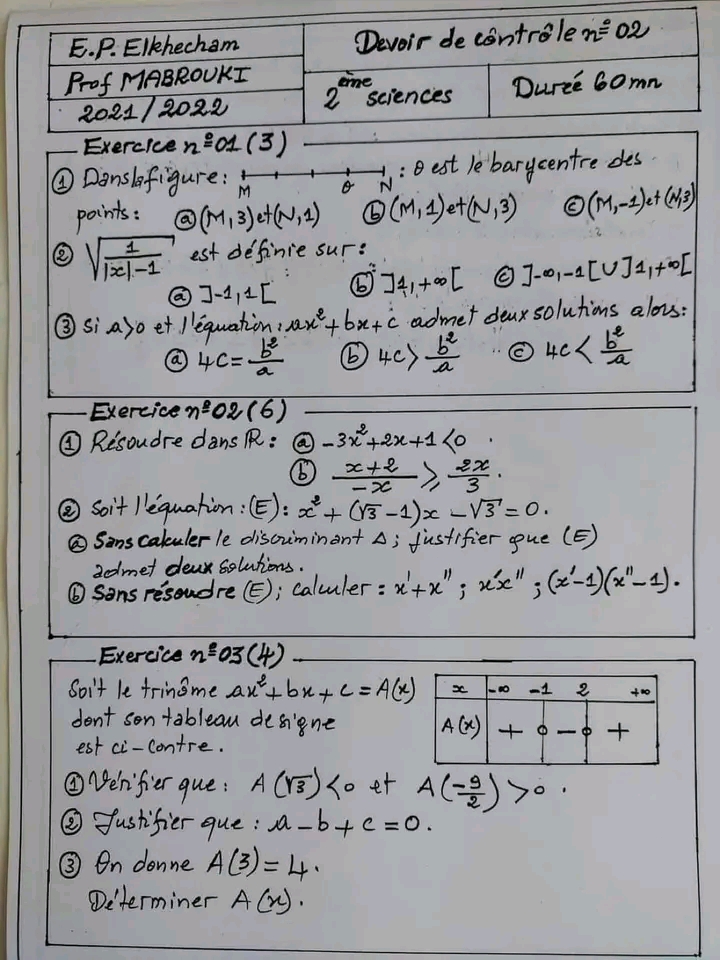 E.P. Elkhecham
Devoir de côntrôle n° 02
Prof MABROUKI
2ème sciences
Dureé 60mn
2021/2022
Exercice n°01 (3)
① Dans la figure : M θ N : θ est le barycentre des
points : ⓐ (M,3) et (N,1) ⓑ (M,1) et (N,3) ⓒ (M,-1) et (N,3)
② √(1/(|x|-1)) est définie sur :
ⓐ ]-1,1[ ⓑ ]1,+∞[ ⓒ ]-∞,-1[U]1,+∞[
③ Si a>0 et l'équation : ax²+bx+c admet deux solutions alors :
ⓐ 4c = b²/a ⓑ 4c > b²/a ⓒ 4c < b²/a
Exercice n°02 (6)
① Résoudre dans IR : ⓐ -3x²+2x+1 <0 .
ⓑ (x+2)/(-x) ≥ 2x/3 .
② Soit l'équation : (E) : x² + (√3 -1)x - √3 = 0.
ⓐ Sans calculer le discriminant Δ ; justifier que (E)
admet deux solutions.
ⓑ Sans résoudre (E) ; calculer : x'+x" ; x'x" ; (x'-1)(x"-1).
Exercice n°03 (4)
Soit le trinôme ax²+bx+c = A(x)
dont son tableau de signe
est ci-contre.
x -∞ -1 2 +∞
A(x) + 0 - 0 +
① Vérifier que : A(√3) <0 et A(-9/2) >0 .
② Justifier que : a - b + c = 0.
③ On donne A(3) = 4.
Déterminer A(x).